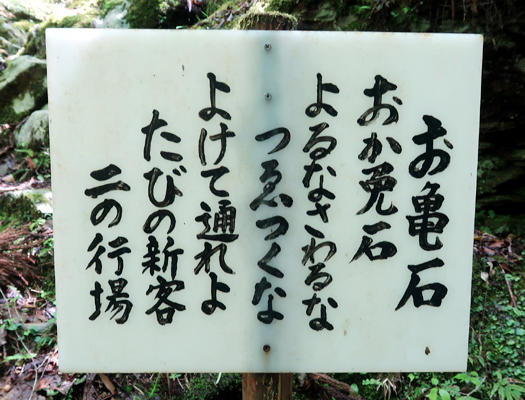 お亀石
おか免石
よるなさわるな
つゑつくな
よけて通れよ
たびの新客
二の行場